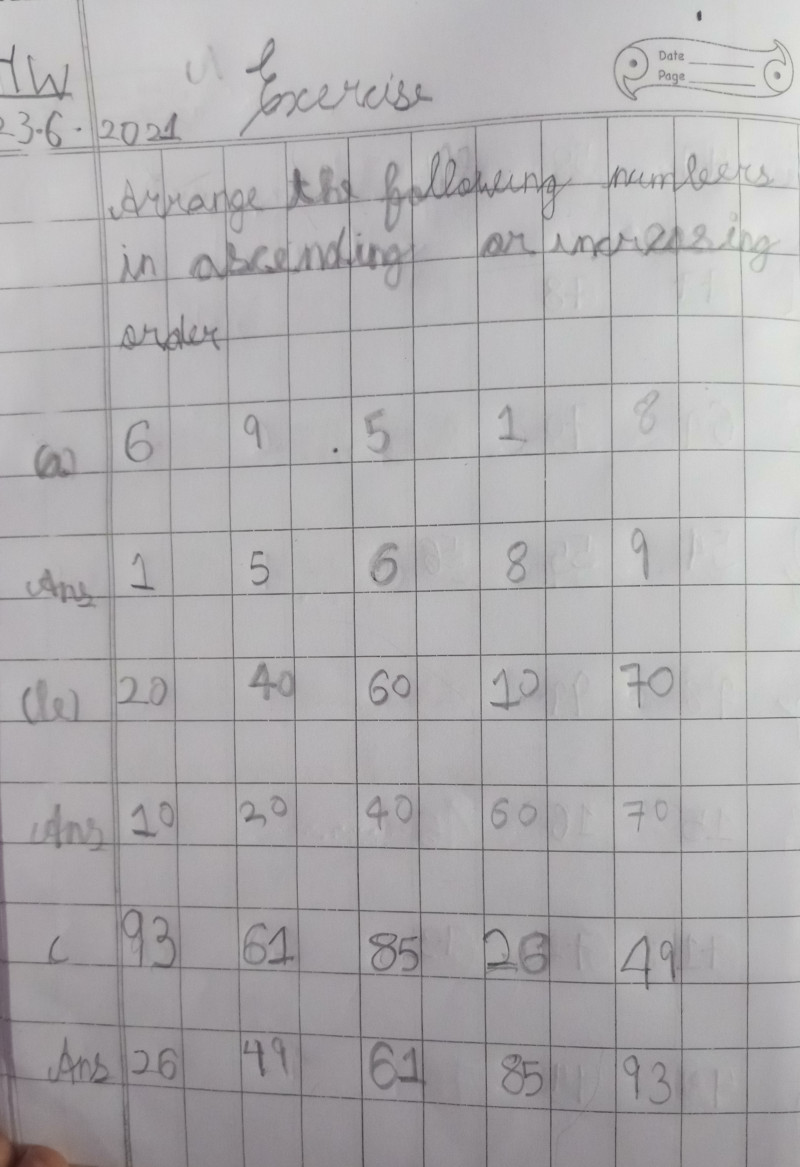 HW
Exercise
Date
Page
23.6.2021
Arrange the following numbers
in ascending or increasing
order
(a) 6 9 . 5 1 8
Ans 1 5 6 8 9
(b) 20 40 60 10 70
Ans 10 20 40 60 70
C 93 61 85 26 49
Ans 26 49 61 85 93